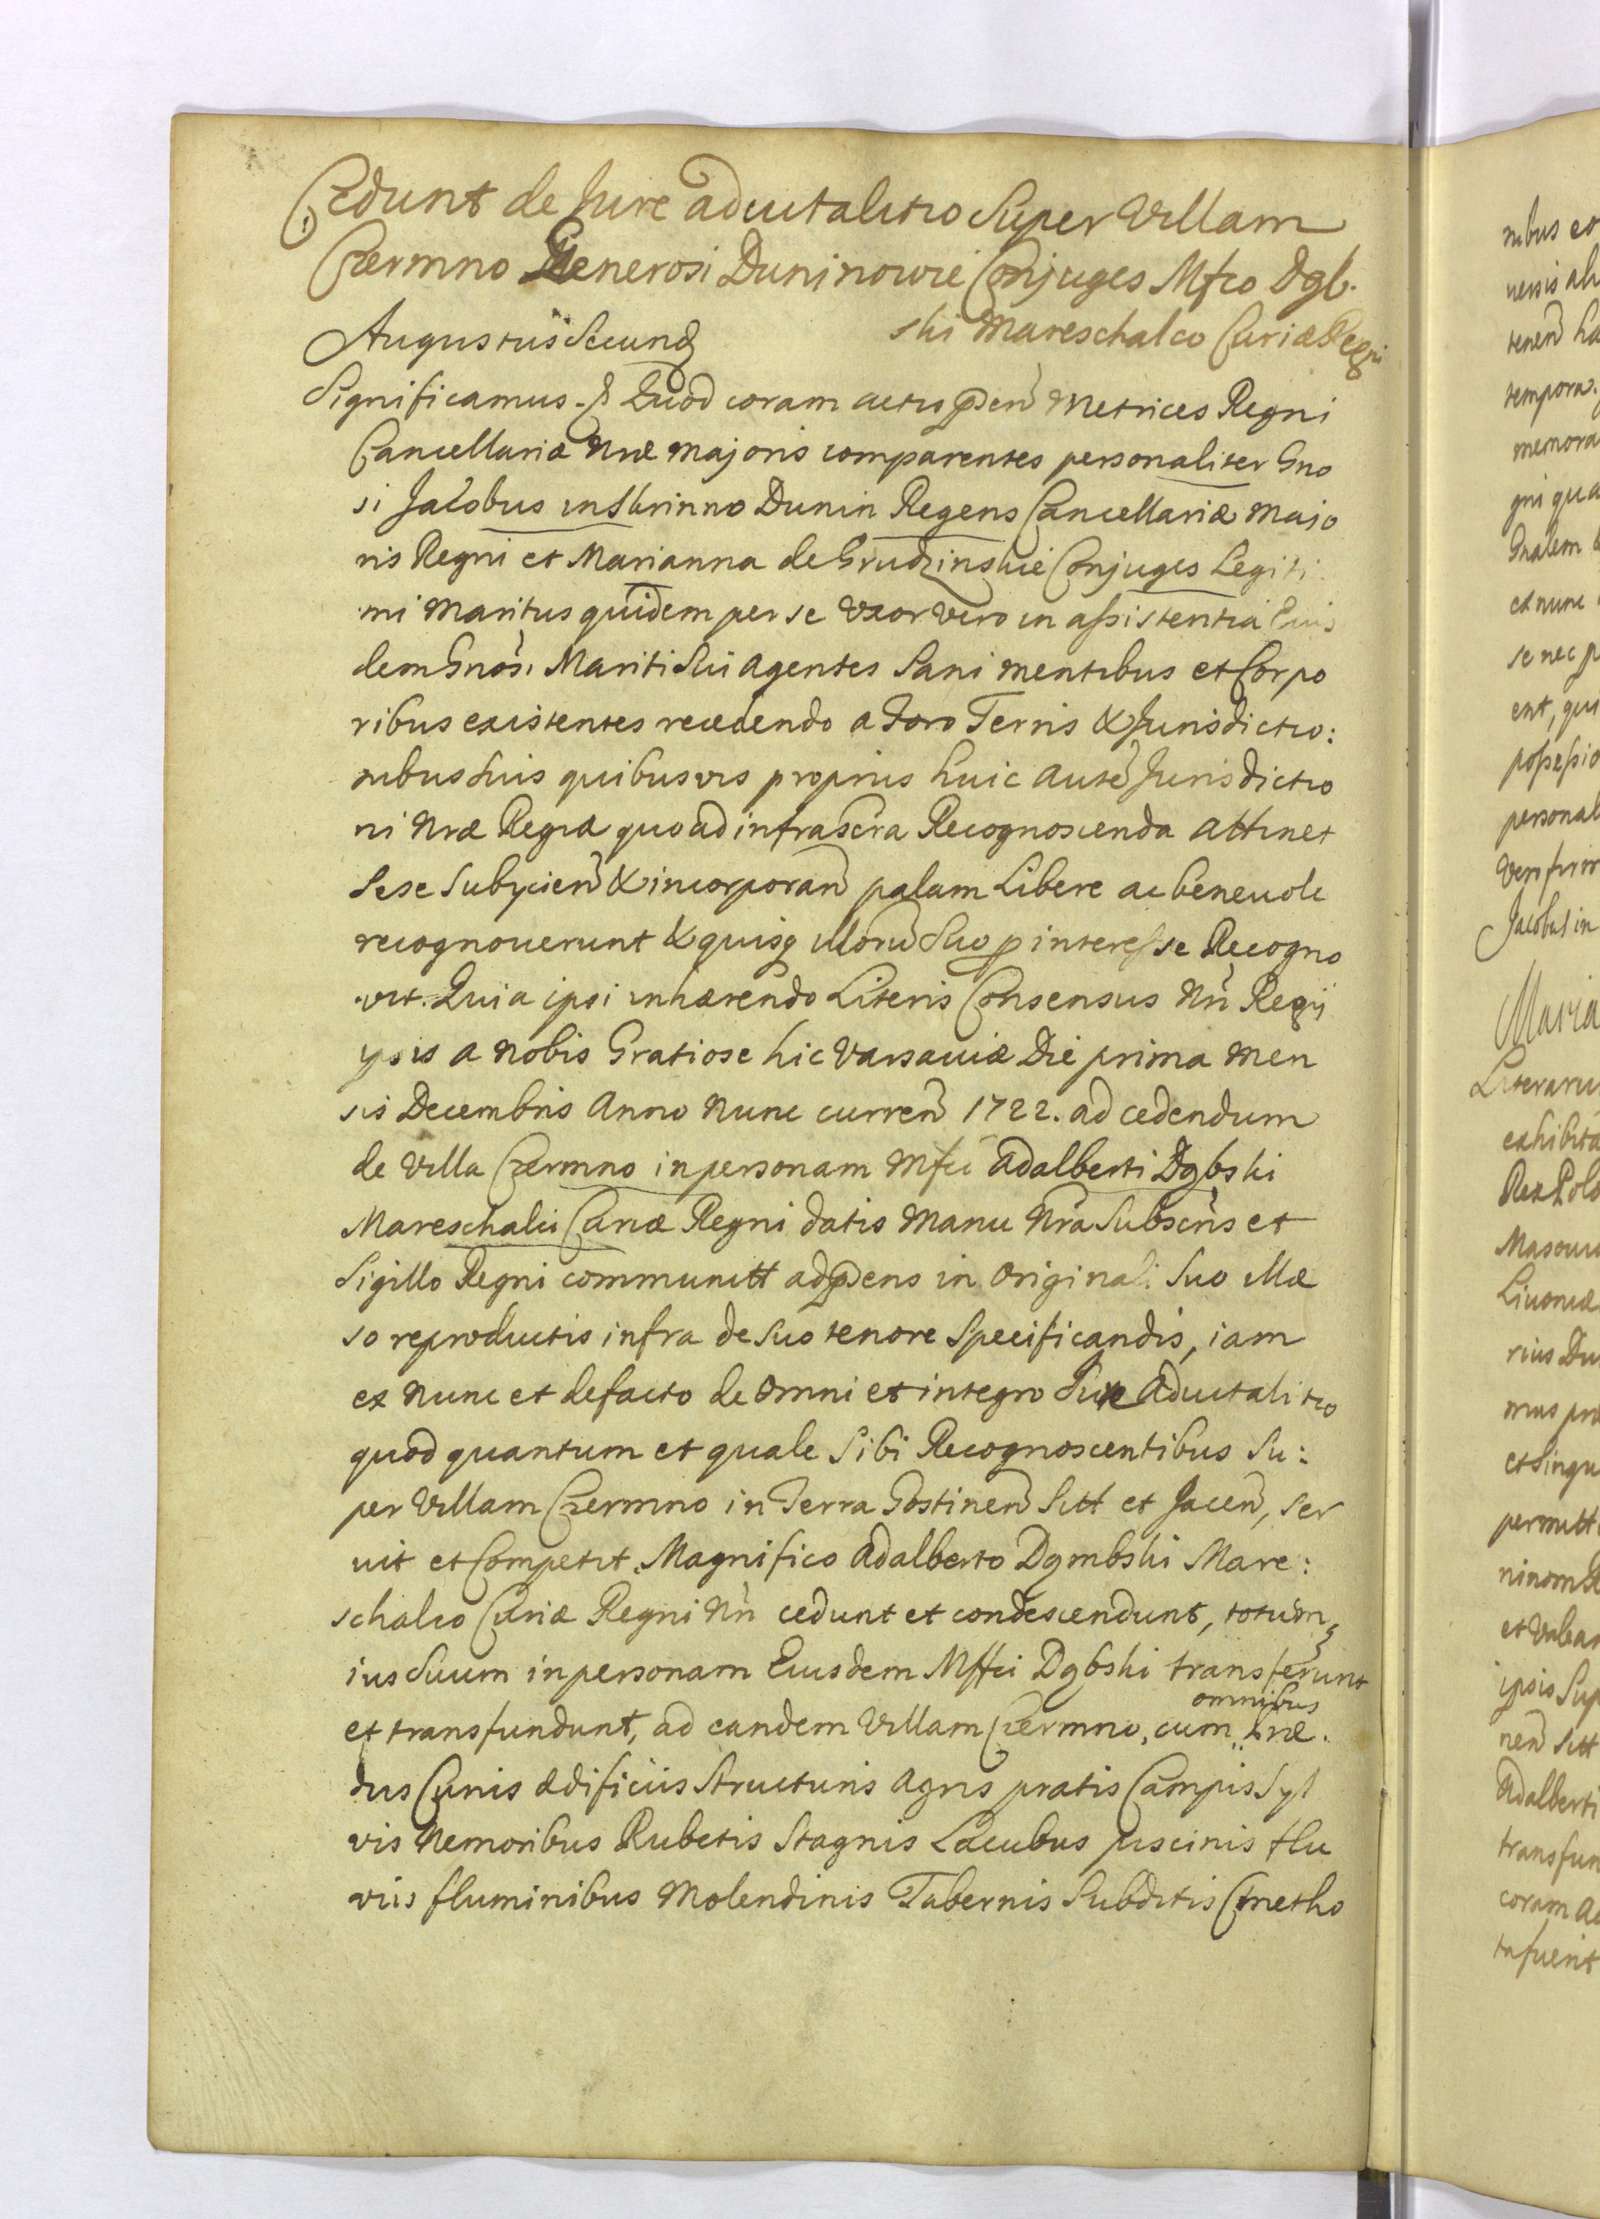 Cedunt de Jure aduitalitio Super Villam
Czermno Generosi Duninowie Conjuges Mfco Dąb-
ski Mareschalco Curiæ Regni
Augustus Secund
Significamus Quod coram actis pñ Metrices Regni
Cancellariæ Nræ majoris comparentes personaliter Gno
si Jacobus in Skrinno Dunin Regens Cancellariæ Majo
ris Regni et Marianna de Grudzinskie Conjuges Legiti
mi Maritus quidem per se Uxor vero in assistentia Eius
dem Gnosi Mariti Sui agentes Sani mentibus et Corpo
ribus existentes recedendo a Foro Terris & Jurisdictio:
nibus Suis quibusvis proprius huic autẽ Jurisdictio
ni Nræ Regiæ quoad infrascra Recognoscenda attinet
Sese Subijcien & incorporan palam Libere ac beneuole
recognouerunt & quisq illorũ Suo p interesse Recogno
vit. Quia ipsi inhærendo Literis Consensus Nri Regij
ipsis a nobis Gratiose hic Varsauiæ Die prima Men
sis Decembris Anno Nunc curren 1722. ad cedendum
de Villa Czermno in personam Mfci Adalberti Dąbski
Mareschalci Curiæ Regni datis Manu Nra Subscris et
Sigillo Regni communitt ad pñs in Originali Suo illæ
so reproductis infra de Suo tenore Specificandis, iam
ex Nunc et defacto de Omni et integro Jure Aduitalitio
quod quantum et quale Sibi Recognoscentibus Su:
per Villam Czermno in Terra Gostinen Sitt et Jacen, Ser
uit et Competit. Magnifico Adalberto Dąmbski Mare:
schalco Curiæ Regni Nri cedunt et condescendunt, totumq
ius Suum in personam Eiusdem Mffci Dąbski transferunt
et transfundunt, ad eandem Villam Czermno, cum omnibus Præ.
dus Curiis ædificiis Structuris Agris pratis Campis Syl
vis Nemoribus Rubetis Stagnis Lacubus piscinis flu
viis fluminibus Molendinis Tabernis Subditis Cmetho
nibus et
tenen
tempora
memora
gni qua
Gnalem
ex nunc
se nec
ent, qui
possessio
personal
Vero
Jacobus in
Maria
Literaru
exhibita
Rex Polo
Masoui
Livoniæ
rius Du
mus
et Singu
permitt
ninom
ipsis Sup
nen Sitt
Adalberti
transfun
coram ac
ta fuerit